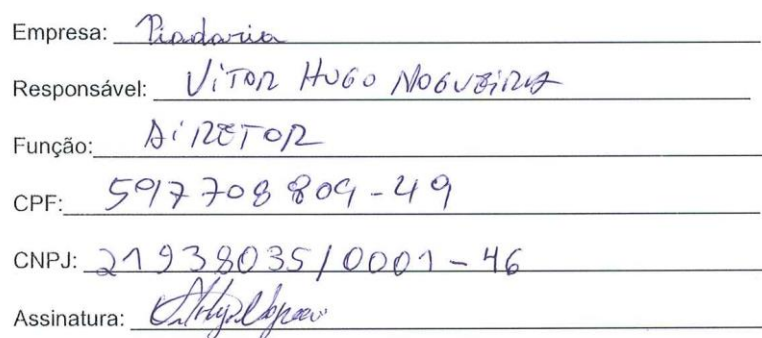 Empresa: Piadaria
Responsável: VITOR HUGO NOGUEIRA
Função: DIRETOR
CPF: 597708809-49
CNPJ: 21938035/0001-46
Assinatura: